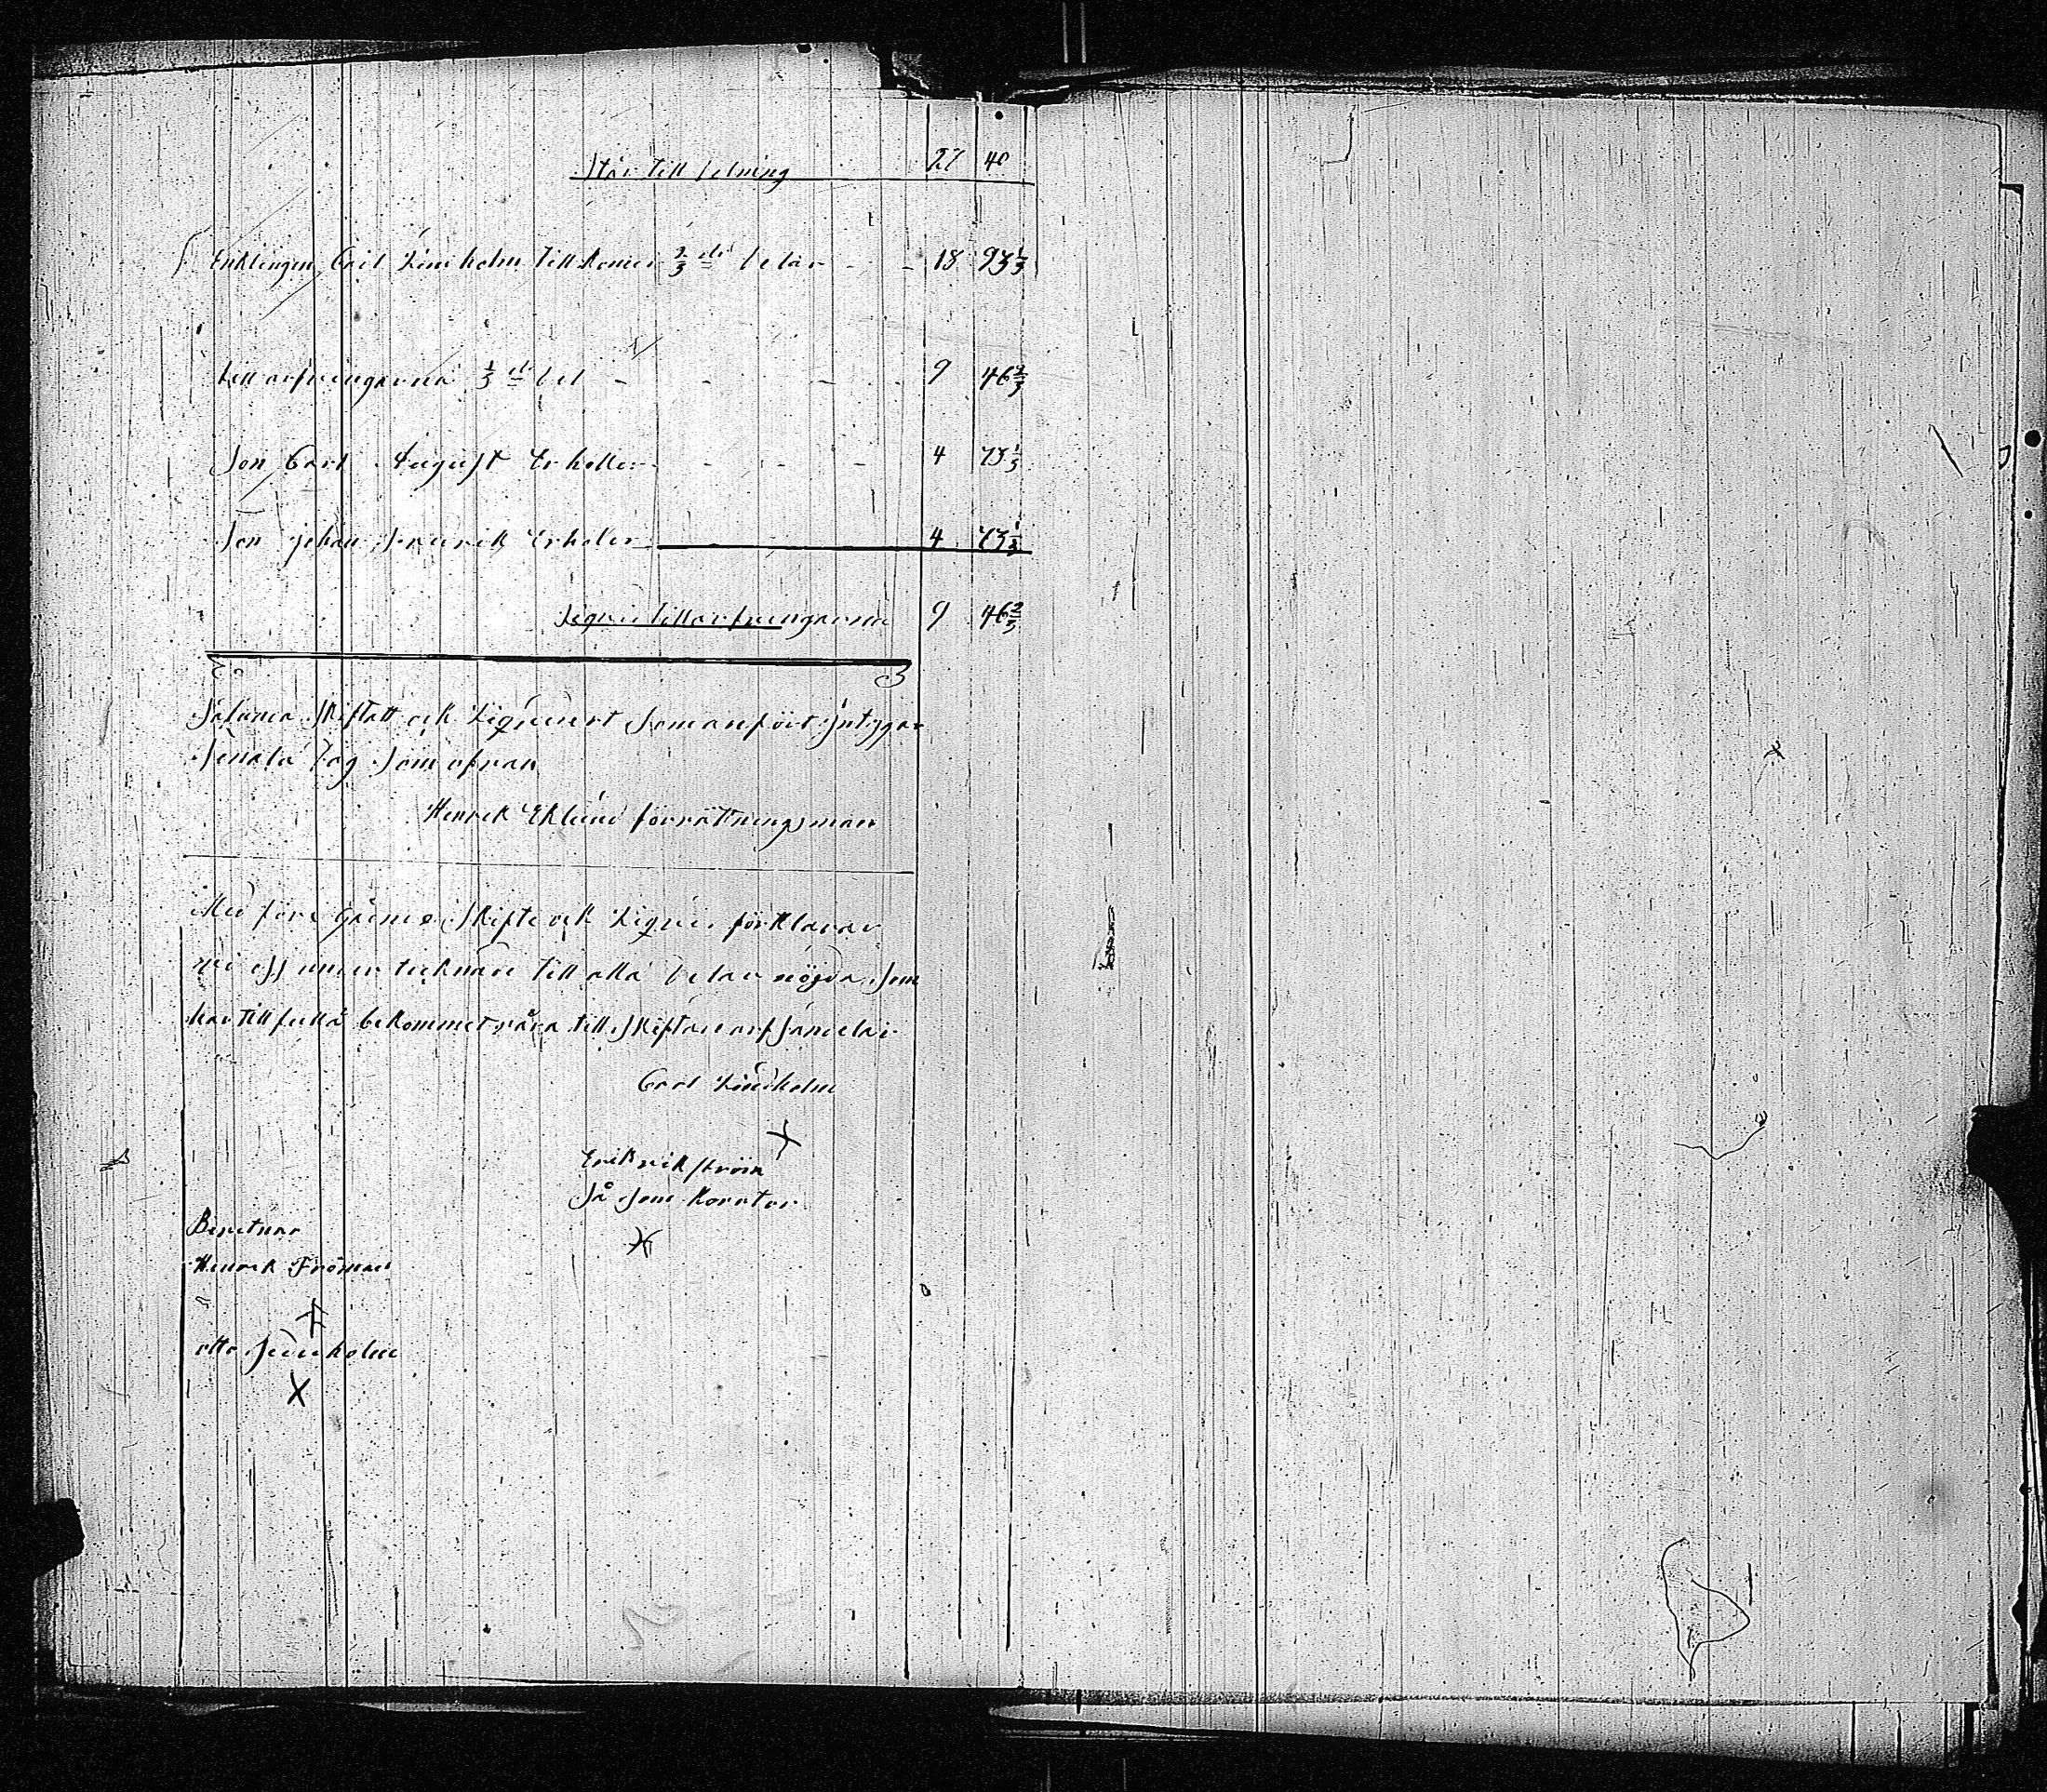 Står till delning 28 40
Enklingen Carl Lindholm tillkomer 2/3 del delar - - 18 93 1/3
till arfvingarna 1/3 del del - - - - 9 46 2/3
Son Carl August Erhåller - - - 4 73 1/3
Son Johan Fredrik Erhåler 4 73 1/3
Liqvid till arfvingarna 9 46 2/3
Sålunda Skiftatt ock Liqviderat Som anfört, Intygar
Senala Dag Som ofvan
Henrik Eklund förrättningsman
Med före gående Skifte ock Liqvid förklarar
wi oss under tecknade till alla delar nöjda, som
har till fullå bekommet våra till Skiftade arfsandelar
Carl Lindholm
Erik vikström
Så Som Korator
Bevitnar
Henrik Fröman
otto Lindholm